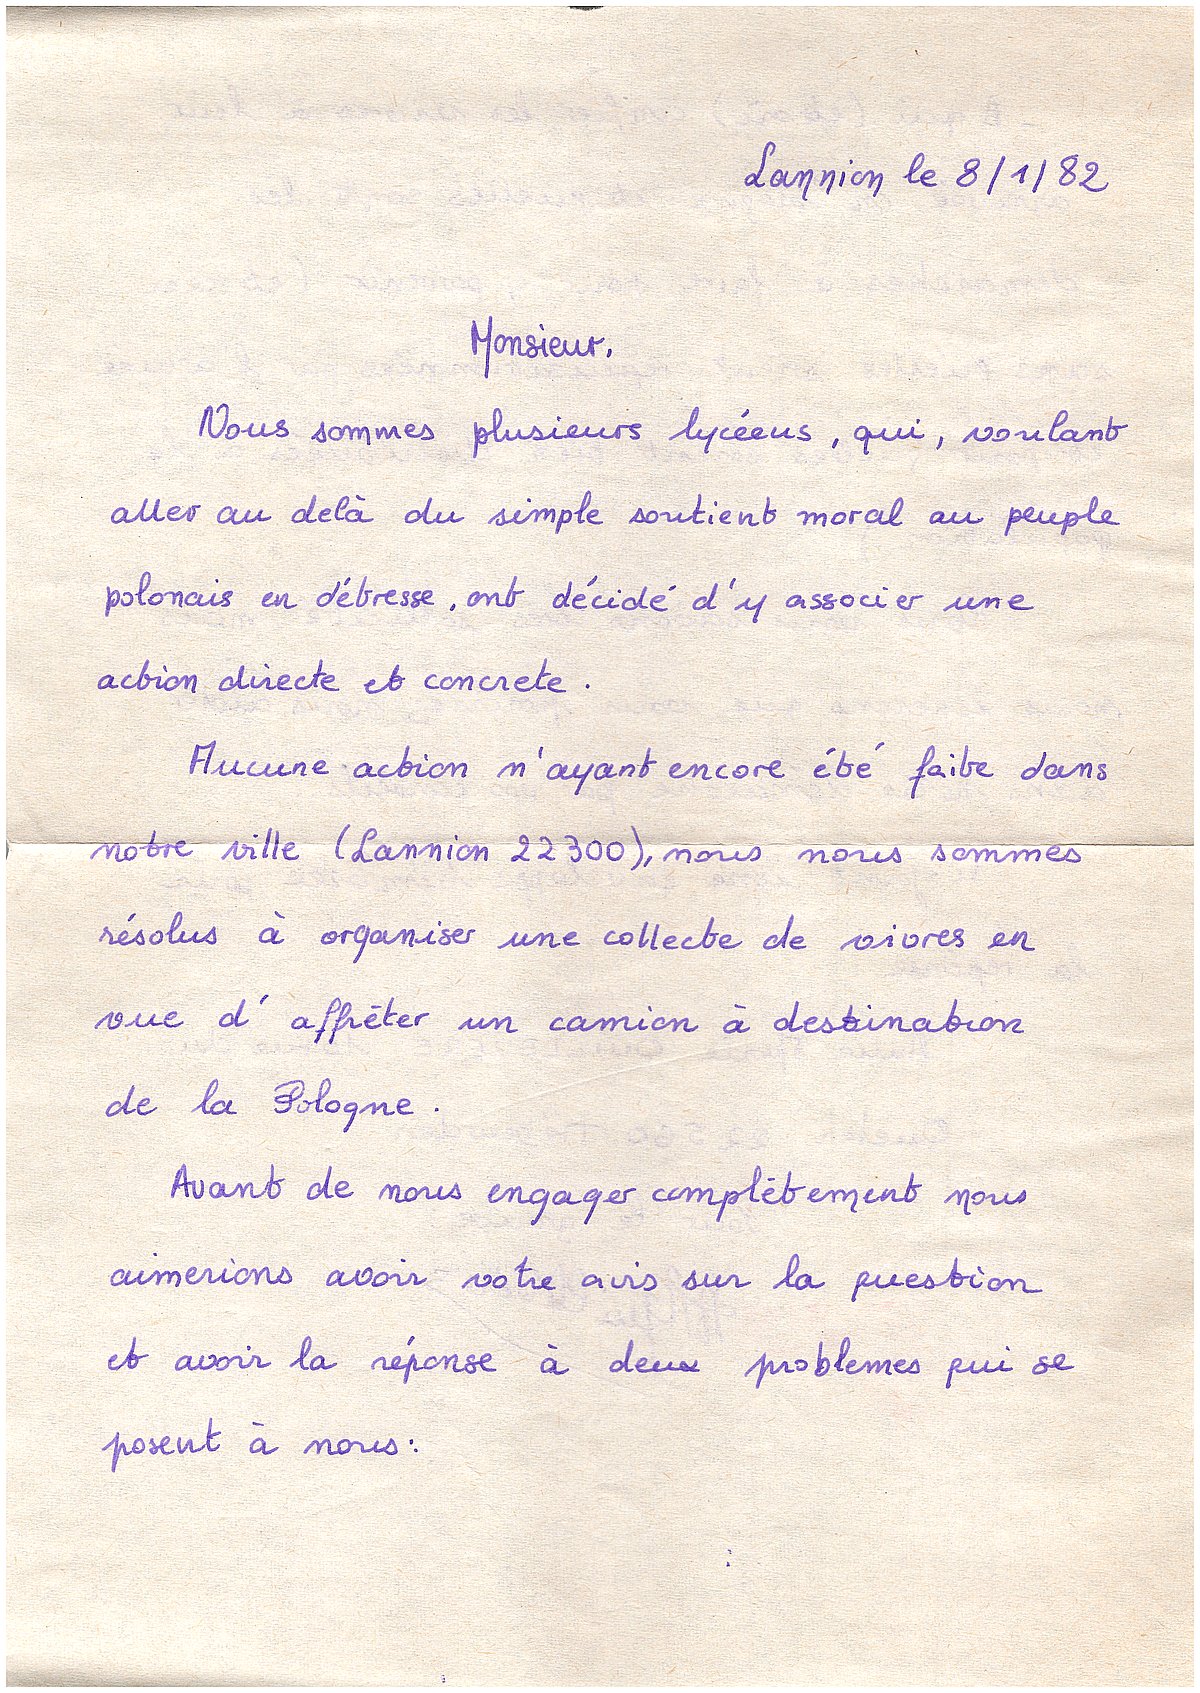 Lannion le 8/1/82
Monsieur.
Nous sommes plusieurs lycéens, qui, voulant
aller au delà du simple soutient moral au peuple
polonais en détresse, ont décidé d'y associer une
action directe et concrete.
Aucune action n'ayant encore été faite dans
notre ville (Lannion 22300), nous nous sommes
résolus à organiser une collecte de vivres en
vue d'affrêter un camion à destination
de la Pologne.
Avant de nous engager complètement nous
aimerions avoir votre avis sur la question
et avoir la réponse à deux problemes qui se
posent à nous: